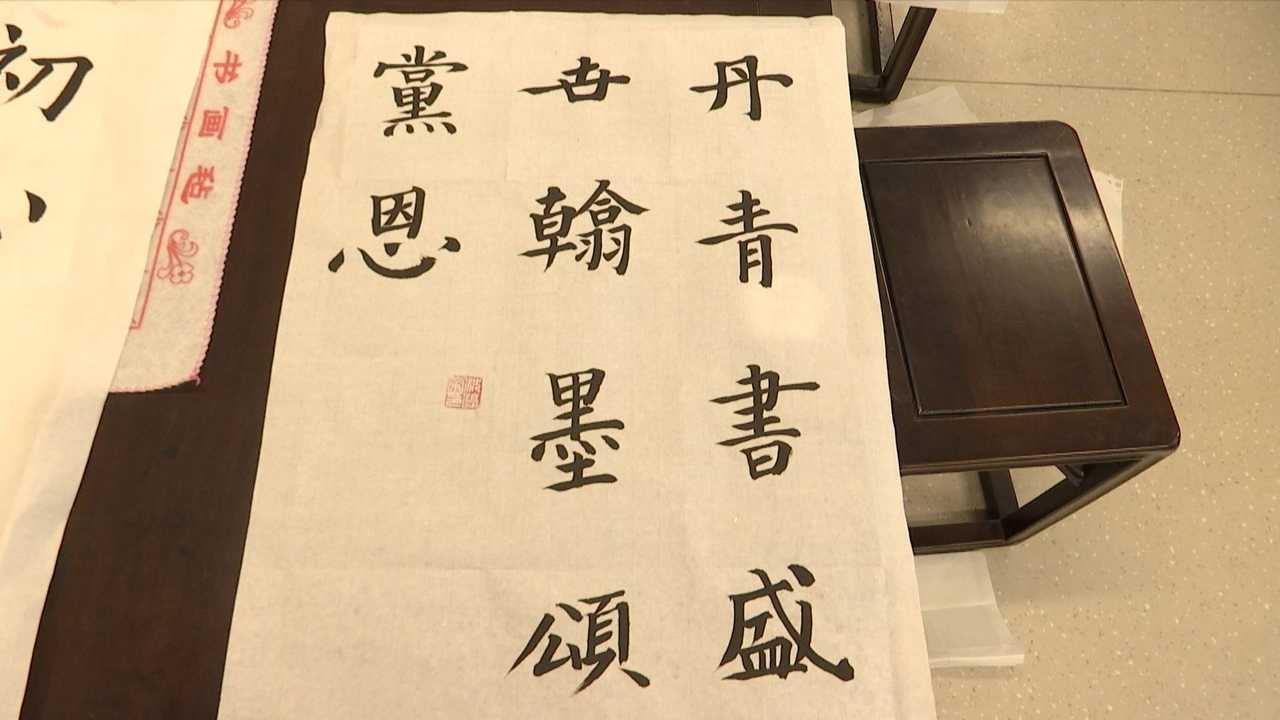 丹青書盛
世翰墨頌
黨恩
书画毡
初